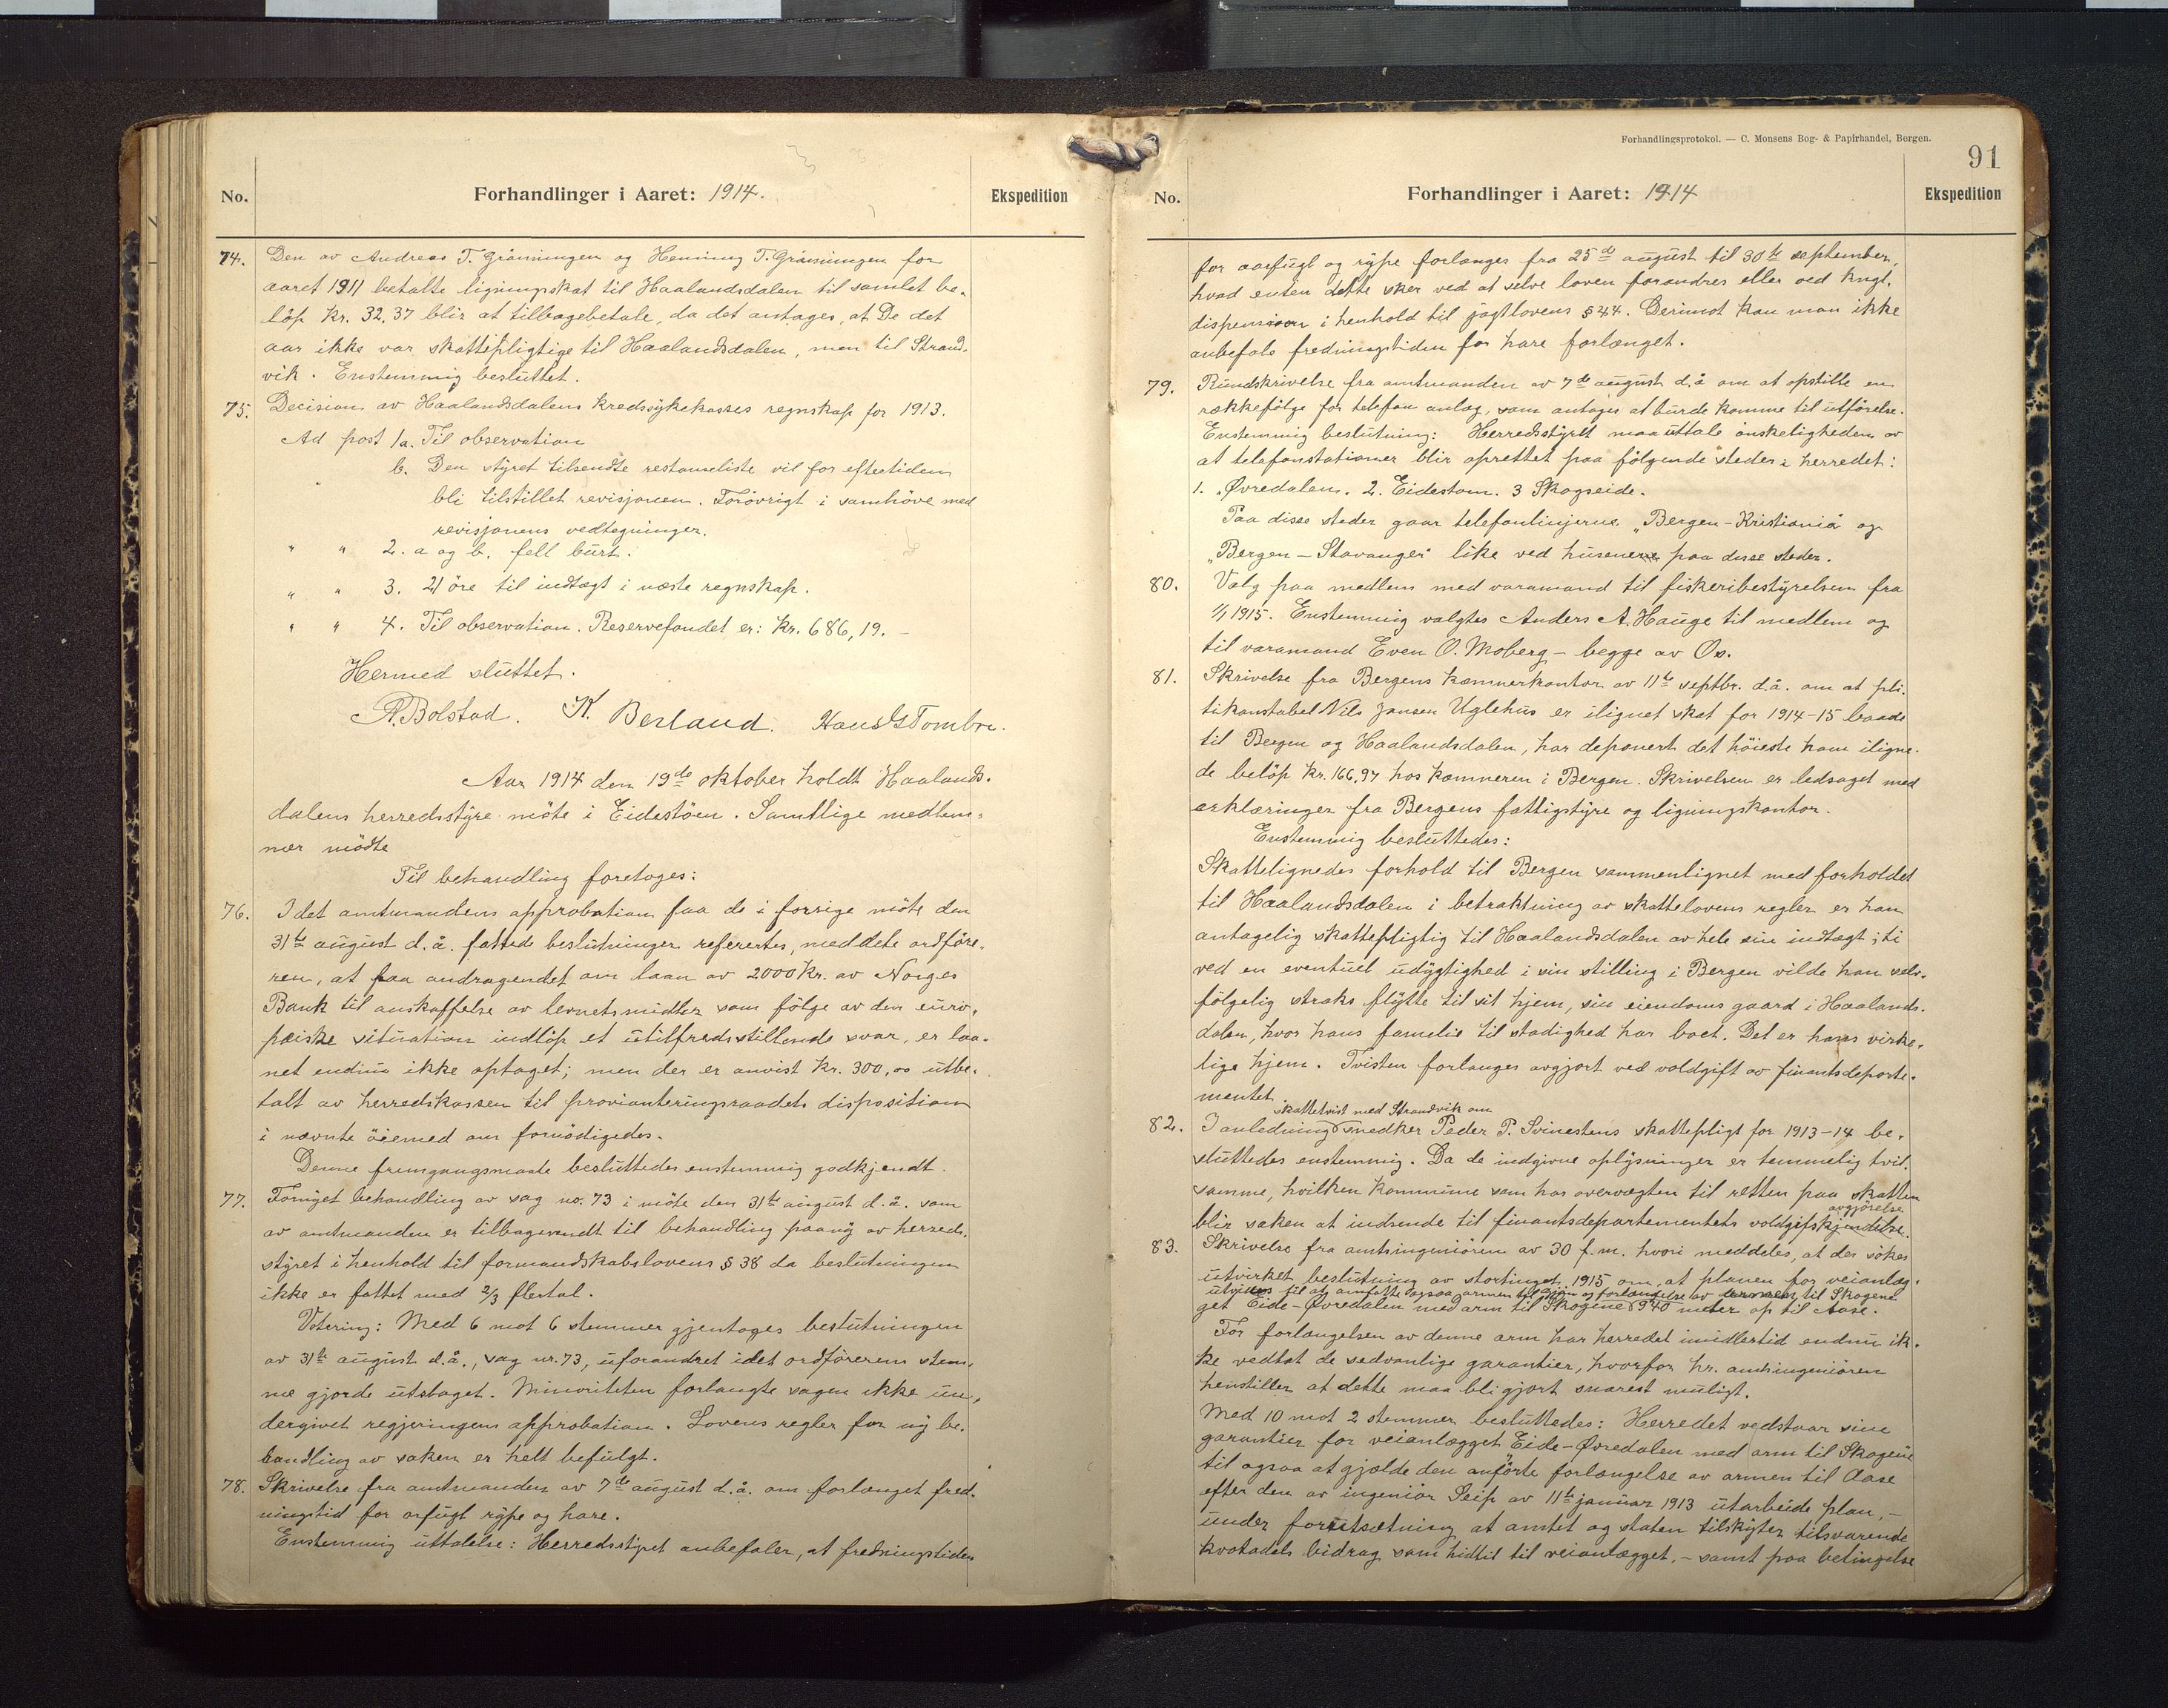 No. Forhandlinger i Aaret: 1914. Ekspedition
74. Den av Andreas T. Gråningen og Henning T. Gråningen for
aaret 1911 betalte ligningsskat til Haalandsdalen til samlet be-
löp Kr. 32,37 blir at tilbagebetale, da det antages, at De det
aar ikke var skattepligtige til Haalandsdalen, men til Strand-
vik. Enstemmig besluttet.
75. Decision av Haalandsdalens Kredssykekasses regnskap for 1913.
Ad post 1a. Til observation
" b. Den styret tilsendte restanseliste vil for eftertiden
bli tilstillet revisjonen. Forövrigt i samhöve med
revisjonens vedtegninger.
" " 2. a og b. fell burt.
" " 3. 21 öre til indtægt i næste regnskap.
" " 4. Til observation. Reservefondet er: Kr. 686,19.-
Hermed sluttet.
A. Bolstad. K. Berland. Hans G Tombre.
Aar 1914 den 19de oktober holdt Haalands-
dalens herredsstyre möte i Eidestöen. Samtlige medlem-
mer mödte
Til behandling foretoges:
76. I det amtmandens approbation paa de i forrige möte den
31te august d.å. fattede beslutninger refereertes, meddele ordföre-
ren, at paa andragendet om laan av 2000 Kr. av Norges
Bank til anskaffelse av levnetsmidler som fölge av den euro-
pæiske situation indlöp et utilfredsstillende svar, er laa-
net endnu ikke optaget; men der er anvist Kr. 300,00 utbe-
talt av herredskassen til provianteringsraadets disposition
i nævnte öiemed om fornödigedes.
Denne fremgangsmaate besluttedes enstemmig godkjendt.
77. Fornyet behandling av sag no. 73 i möte den 31te august d.å. som
av amtmanden er tilbagesendt til behandling paany av herreds-
styret i henhold til formandskabslovens § 38 da beslutningen
ikke er fattet med 2/3 flertal.
Votering: Med 6 mot 6 stemmer gjentoges beslutningen
av 31te august d.å., sag nr. 73, uforandret idet ordförerens stem-
me gjorde utslaget. Minoriteten forlangte sagen ikke un-
dergivet regjeringens approbation. Lovens regler for ny be-
handling av saken er helt befulgt.
78. Skrivelse fra amtmanden av 7de august d.å. om forlænget fred-
ningstid for orfugl rype og hare.
Enstemmig uttalelse: Herredsstyret anbefaler, at fredningstiden
Forhandlingsprotokol. — C. Monsens Bog- & Papirhandel, Bergen.
91
No. Forhandlinger i Aaret: 1914 Ekspedition
for aarfugl og rype forlænges fra 25de august til 30te september,
hvad enten dette sker ved at selve loven forandres eller ved kngl.
dispension i henhold til jagtlovens § 44. Derimot kan man ikke
anbefale fredningstiden for hare forlænget.
79. Rundskrivelse fra amtmanden av 7de august d.å om at opstille en
rækkefölge for telefon anlæg, som antages at burde komme til utförelse.
Enstemmig beslutning: Herredsstyret maa uttale önskeligheden av
at telefonstationer blir oprettet paa fölgende steder i herredet:
1. Øvredalen. 2. Eidestöen. 3 Skogseide.
Paa disse steder gaar telefonlinjerne „Bergen-Kristiania" og
„Bergen-Stavanger" like ved husene paa disse steder.
80. Valg paa medlem med varamand til fiskeribestyrelsen fra
1/1 1915. Enstemmig valgtes Anders A. Hauge til medlem og
til varamand Even O. Moberg - begge av Os.
81. Skrivelse fra Bergens kæmnerkontor av 11te septbr. d.å. om at pli-
tikonstabel Nils Jansen Uglehus er ilignet skat for 1914-15 baade
til Bergen og Haalandsdalen, har deponert det höieste ham iligne-
de belöp Kr. 166,97 hos kæmneren i Bergen. Skrivelsen er ledsaget med
erklæringer fra Bergens fattigstyre og ligningskontor.
Enstemmig besluttedes:
Skattelignedes forhold til Bergen sammenlignet med forholdet
til Haalandsdalen i betraktning av skattelovens regler er han
antagelig skattepligtig til Haalandsdalen av hele sin indtægt; ti
ved en eventuel udygtighed i sin stilling i Bergen vilde han selv-
fölgelig straks flytte til sit hjem, sin eiendoms gaard i Haalands-
dalen, hvor hans familie til stadighed har boet. Det er hans virke-
lige hjem. Tvisten forlanges avgjort ved voldgift av finantsdeparte-
mentet.
skattetvist med Strandvik om
82. I anledning snedker Peder P. Svinestens skattepligt for 1913-14 be-
sluttedes enstemmig. Da de indgivne oplysninger er temmelig tvil-
samme, hvilken kommune som har overvægten til retten paa skatten
avgjörelse
blir saken at indsende til finantsdepartementets voldgifskjendelse.
83. Skrivelse fra amtsingeniören av 30 f.m. hvori meddeles, at der sökes
utvirket beslutning av stortinget 1915 om, at planen for veianlæg-
utvides til at omfatte ogsaa armen til og forlængelse av armen til Skogene
get Eide-Øvredalen med arm til Skogene 940 meter op til Aase.
For forlængelsen av denne arm har herredet imidlertid endnu ik-
ke vedtat de sedvanlige garantier, hvorfor hr. amtsingeniören
henstiller at dette maa bli gjort snarest muligt.
Med 10 mot 2 stemmer besluttedes: Herredet vedstaar sine
garantier for veianlægget Eide-Øvredalen med arm til Skogene
til ogsaa at gjælde den anförte forlængelse av armen til Aase
efter den av ingeniör Seip av 11te januar 1913 utarbeide plan, -
under forutsætning at amtet og staten tilskyter tilsvarende
kvotadels bidrag som hidtil til veianlægget, - samt paa betingelse